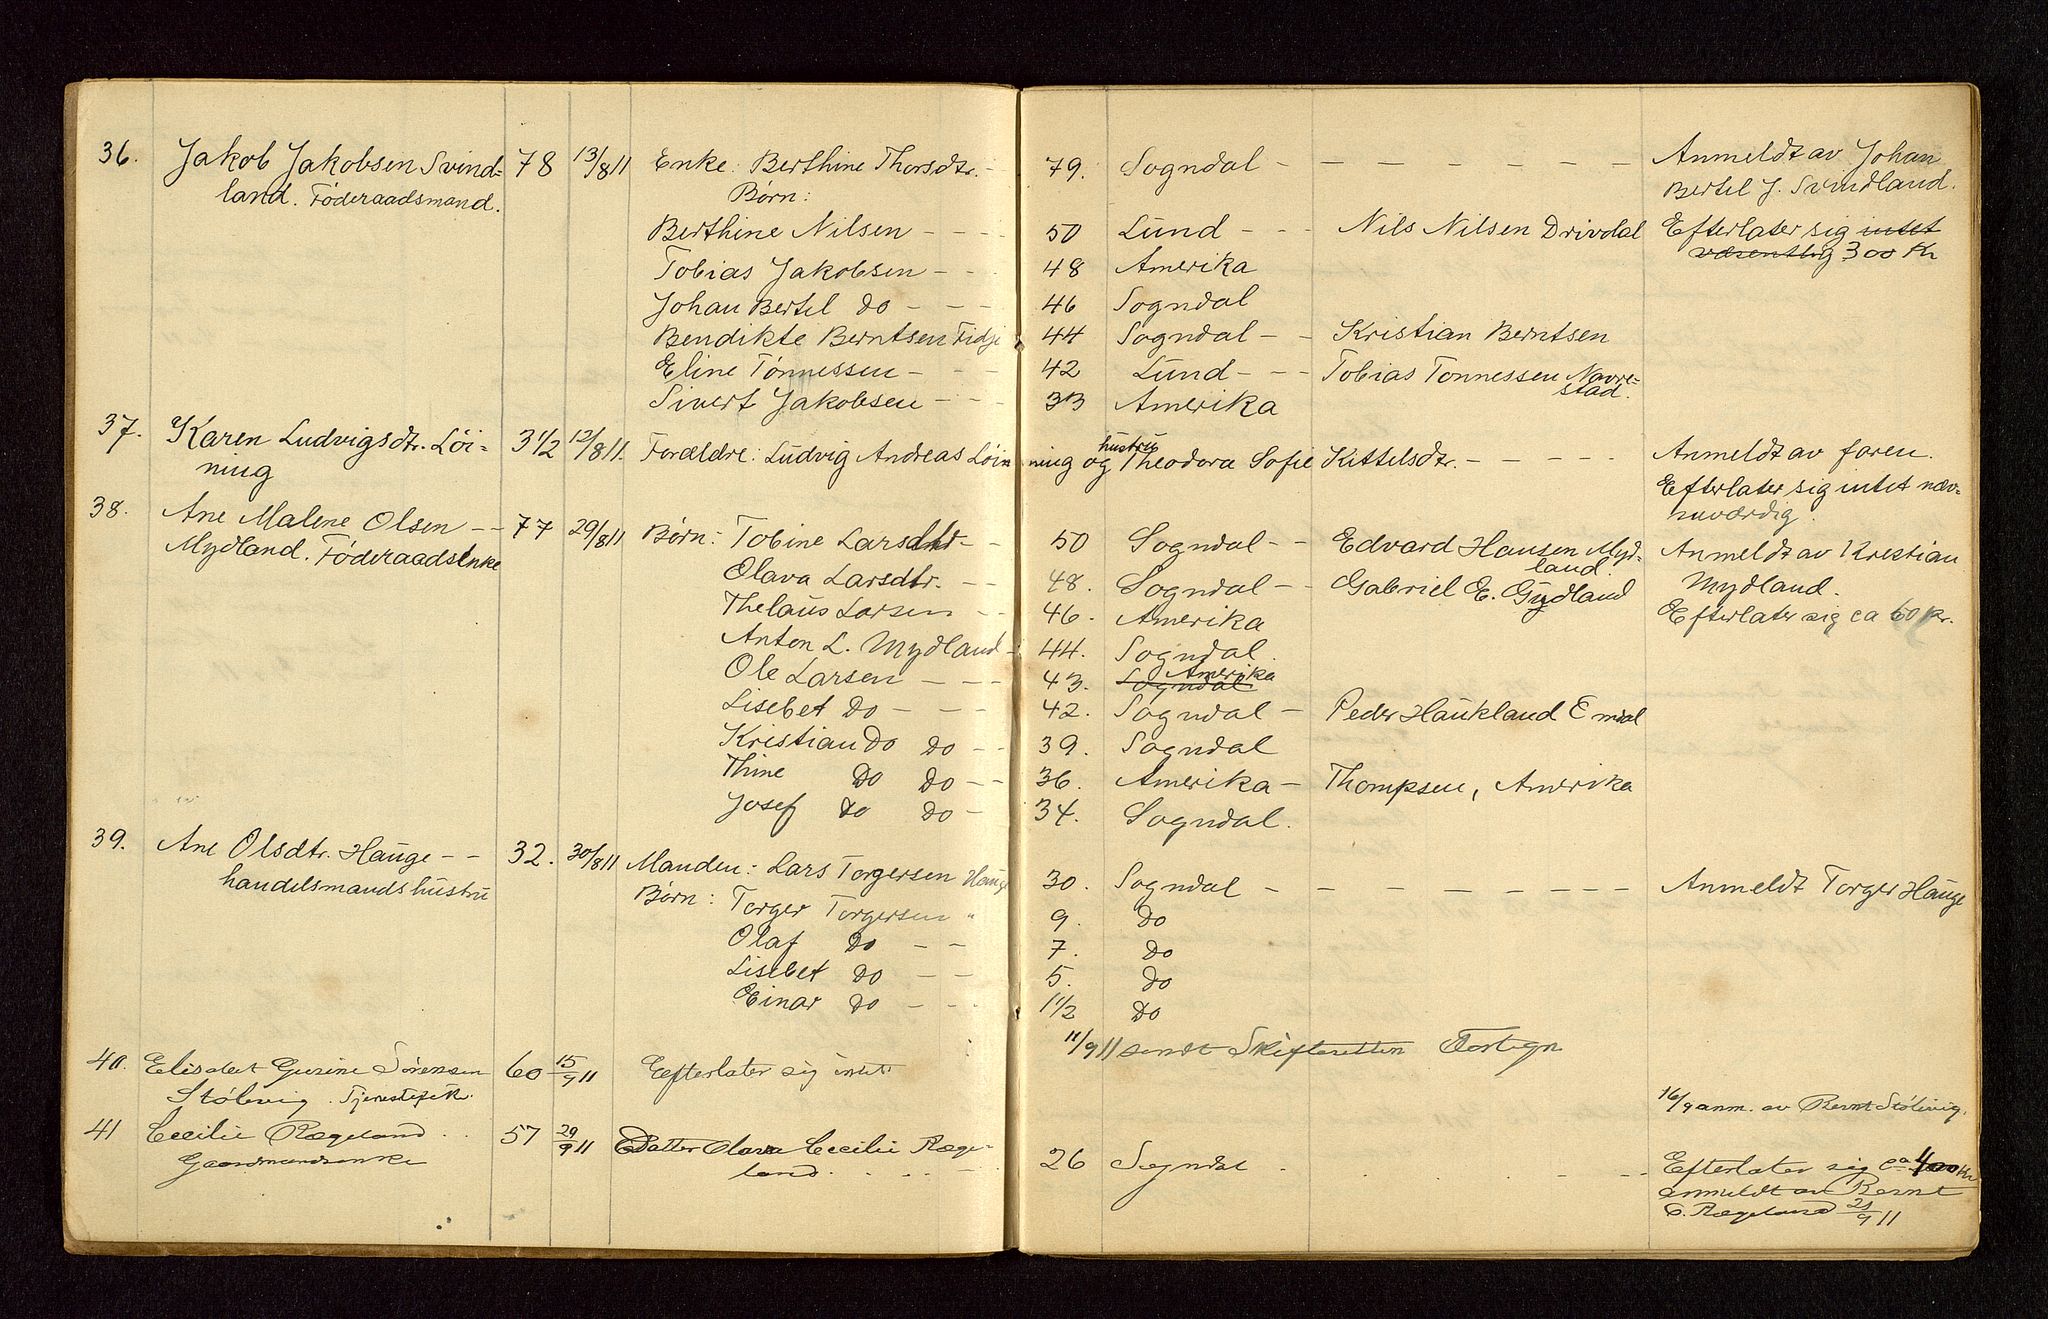 36. Jakob Jakobsen Svind- 78 13/8 11 Enke: Berthine Thorsdtr. - 79. Sogndal - - - - - - - - Anmeldt av Johan
land. Føderaadsmand. Børn: Bertel J. Svindland.
Berthine Nilsen - - - - 50 Lund - - - Nils Nilsen Drivdal Efterlater sig intet
Tobias Jakobsen - - - 48 Amerika væsentlig 300 Kr
Johan Bertel do - - - 46 Sogndal
Bendikte Berntsen Fidje 44 Sogndal - - Kristian Berntsen
Eline Tønnessen - - - 42 Lund - - - Tobias Tønnessen Navre-
stad.
Sivert Jakobsen - - - 33 Amerika
37. Karen Ludvigsdtr. Løi- 3 1/2 12/8 11. Forældre: Ludvig Andreas Løin ning og hustru Theodora Sofie Kittelsdtr. - - - - - Anmeldt av faren.
ning Efterlater sig intet næv-
neværdig.
38. Ane Malene Olsen - - 77 29/8 11 Børn: Tobine Larsdtr - - 50 Sogndal - - Edvard Hansen Myd- Anmeldt av Kristian
Mydland. Føderaadsenke land. Mydland.
Olava Larsdtr. - - 48. Sogndal - - Gabriel E. Gydland Efterlater sig ca 60 kr.
Thelaus Larsen - - 46. Amerika
Anton L. Mydland - 44. Sogndal.
Ole Larsen - - - 43. Sogndal Amerika
Lisebet Do - - - 42. Sogndal - Peder Haukland Emdal
Kristian Do Do - - 39. Sogndal
Thine Do Do - - 36. Amerika - Thompsen, Amerika
Josef Do Do - 34. Sogndal.
39. Ane Olsdtr. Hauge - - 32. 30/8 11 Manden: Lars Torgersen Hauge 30. Sogndal - - - - - - - - Anmeldt Torger Hauge
handelsmands hustru Børn: Torger Torgersen " 9. Do
Olaf Do - - 7. Do
Lisebet Do - - 5. Do
Einar Do - - - 1 1/2 Do
11/9 11 sendt Skifteretten Fortegn
40. Elisabet Gurine Sørensen 60 15/9 11 Efterlater sig intet
Stølevig. Tjenestepik. 16/9 anm. av Bernt Stølevig.
41 Cecilie Rægeland . . 57 20/9 11 Datter Olava Cecilie Ræge- 26 Sogndal . . - - Efterlater sig ca 400 Kr
Gaardmandsenke land. . . . anmeldt av Bernt
C. Rægeland 21/9 11